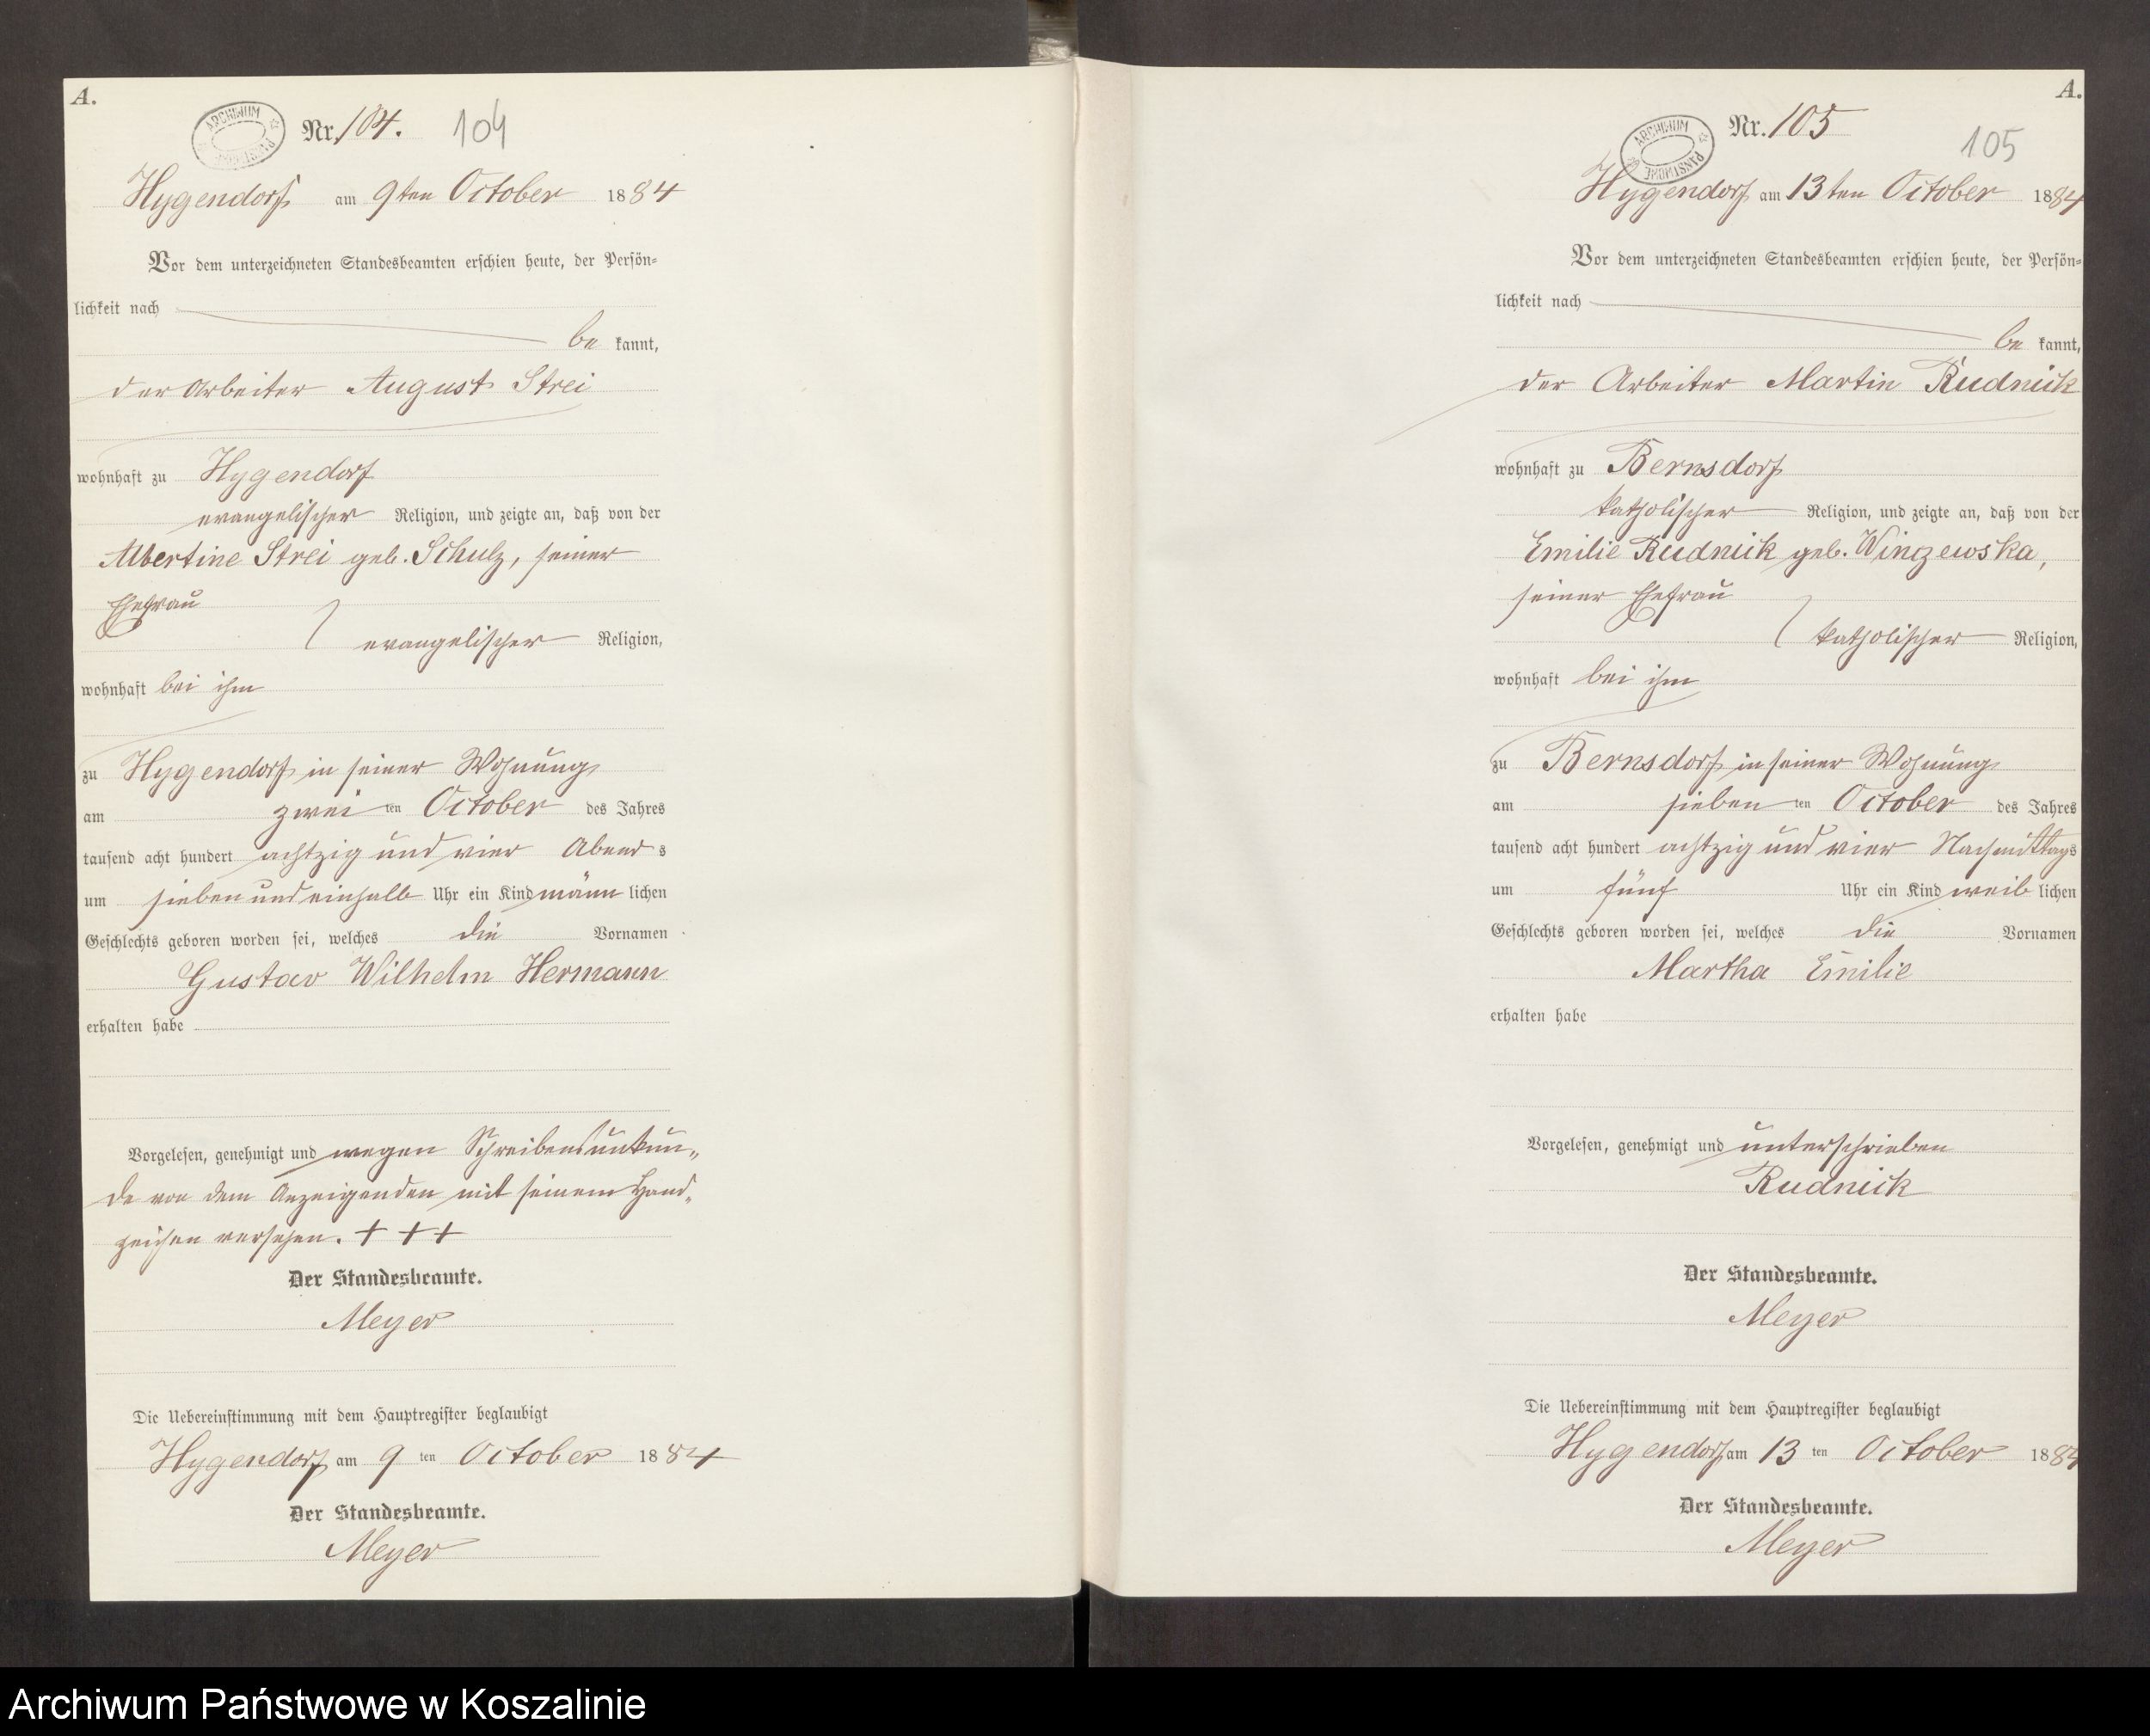 A.
ARCHIWUM PAŃSTWOWE
Nr. 104. 104
Hygendorf am 9ten October 1884
Vor dem unterzeichneten Standesbeamten erschien heute, der Persön-
lichkeit nach
be kannt,
der Arbeiter August Strei
wohnhaft zu Hygendorf
evangelischer Religion, und zeigte an, daß von der
Albertine Strei geb. Schulz, seiner
Ehefrau
evangelischer Religion,
wohnhaft bei ihm
zu Hygendorf in seiner Wohnung
am zwei ten October des Jahres
tausend acht hundert achtzig und vier Abend s
um sieben und einhalb Uhr ein Kind männ lichen
Geschlechts geboren worden sei, welches die Vornamen
Gustav Wilhelm Hermann
erhalten habe
Vorgelesen, genehmigt und wegen Schreibensunkun-
de von dem Anzeigenden mit seinem Hand-
zeichen versehen. + + +
Der Standesbeamte.
Meyer
Die Uebereinstimmung mit dem Hauptregister beglaubigt
Hygendorf am 9 ten October 1884
Der Standesbeamte.
Meyer
A.
ARCHIWUM PAŃSTWOWE
Nr. 105 105
Hygendorf am 13ten October 1884
Vor dem unterzeichneten Standesbeamten erschien heute, der Persön-
lichkeit nach
be kannt,
der Arbeiter Martin Rudnick
wohnhaft zu Bernsdorf
katholischer Religion, und zeigte an, daß von der
Emilie Rudnick geb. Winczewska,
seiner Ehefrau
katholischer Religion,
wohnhaft bei ihm
zu Bernsdorf in seiner Wohnung
am sieben ten October des Jahres
tausend acht hundert achtzig und vier Nachmittags
um fünf Uhr ein Kind weib lichen
Geschlechts geboren worden sei, welches die Vornamen
Martha Emilie
erhalten habe
Vorgelesen, genehmigt und unterschrieben
Rudnick
Der Standesbeamte.
Meyer
Die Uebereinstimmung mit dem Hauptregister beglaubigt
Hygendorf am 13 ten October 1884
Der Standesbeamte.
Meyer
Archiwum Państwowe w Koszalinie